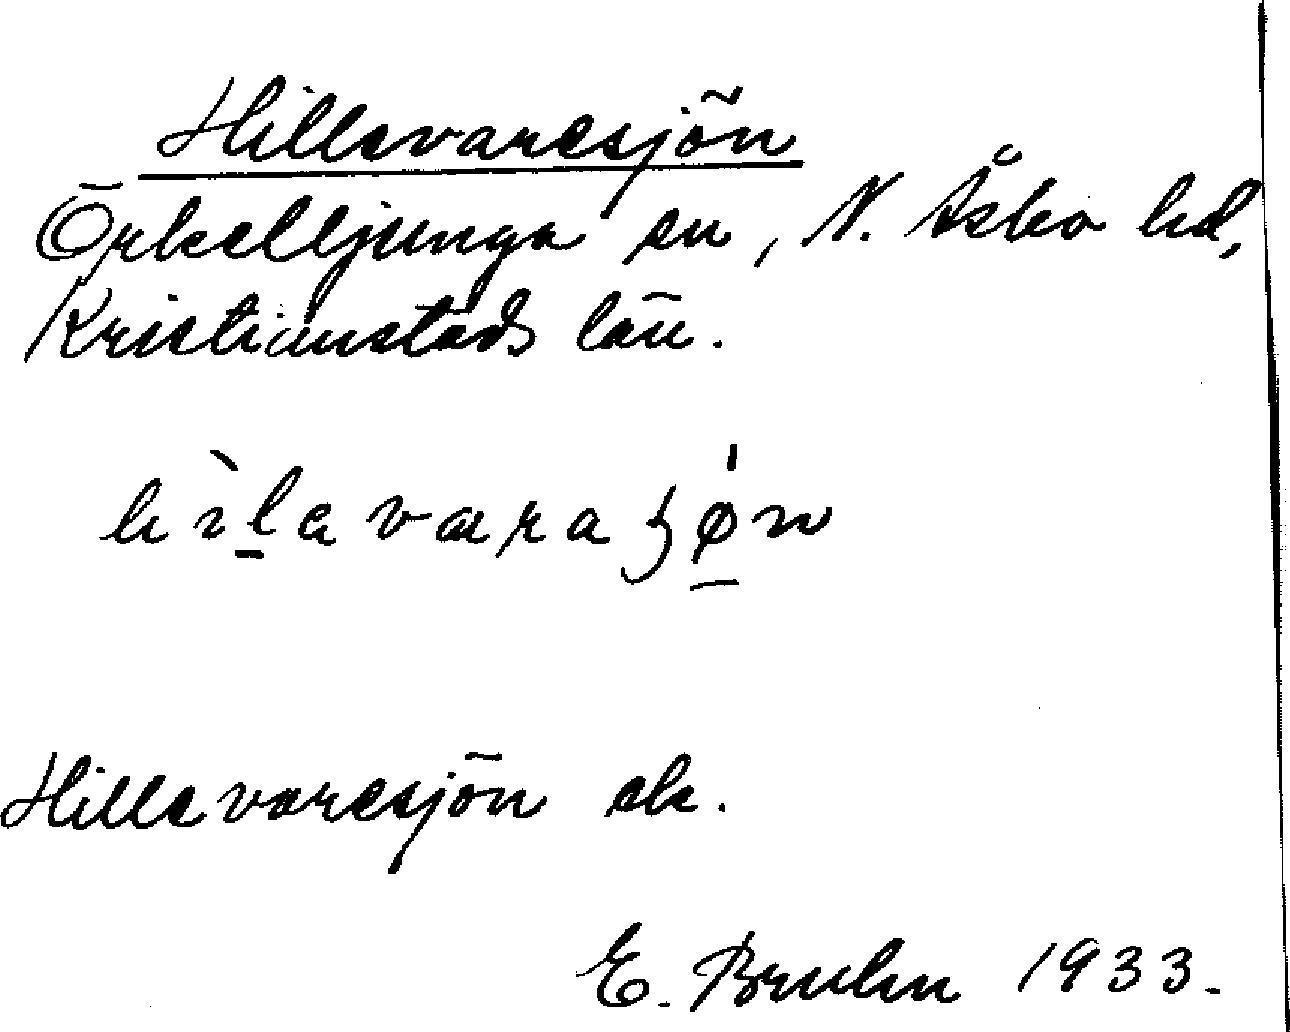 Hillevaresjön
Örkelljunga sn, N. Åsbo hd,
Kristianstads län.
Hillevaresjön ek.
E. Bruhn 1933.